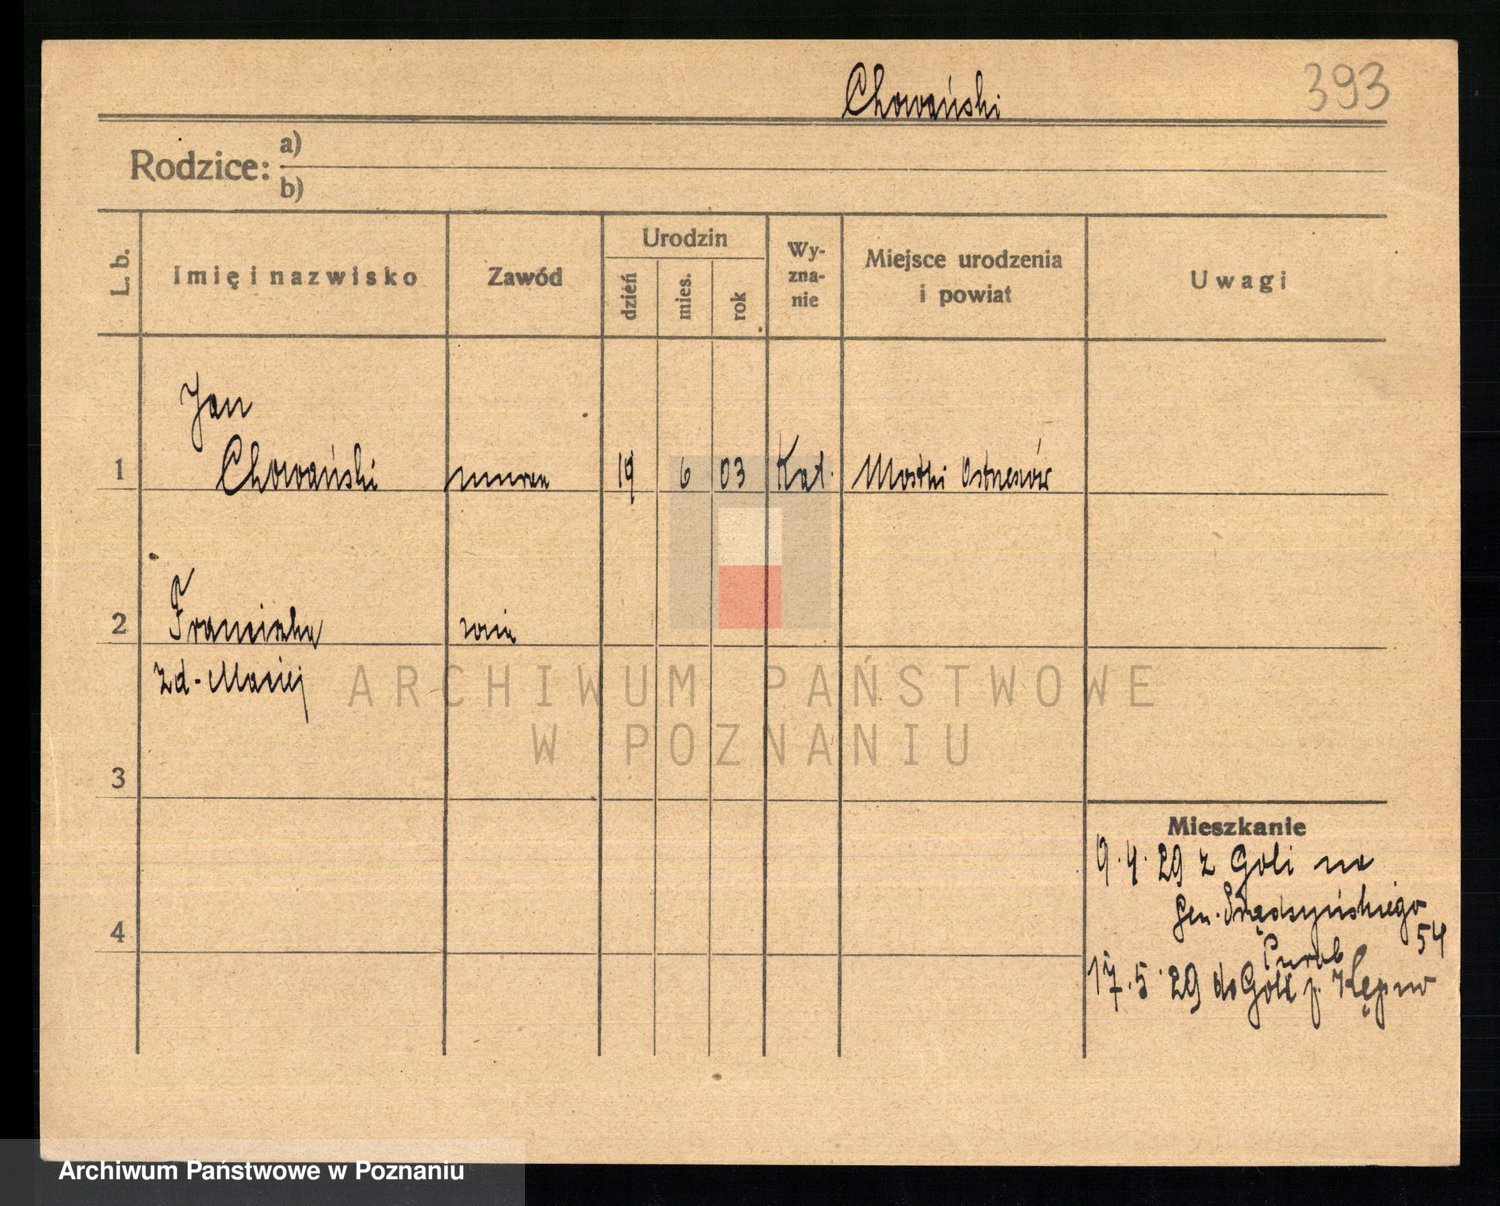 Chowański
393
Rodzice: a)
b)
L. b.
Imię i nazwisko
Zawód
Urodzin
dzień
mies.
rok
Wy-
zna-
nie
Miejsce urodzenia
i powiat
Uwagi
Jan
1 Chowański murarz 19 6 03 Kat. Mostki Ostrzeszów
2 Franciszka żona
zd- Maciej
3
Mieszkanie
9.4.29 z Goli na
Gen. Prądzyńskiego
54
4
17.5.29 do Goli p. Kępno
ARCHIWUM PAŃSTWOWE
W POZNANIU
Archiwum Państwowe w Poznaniu